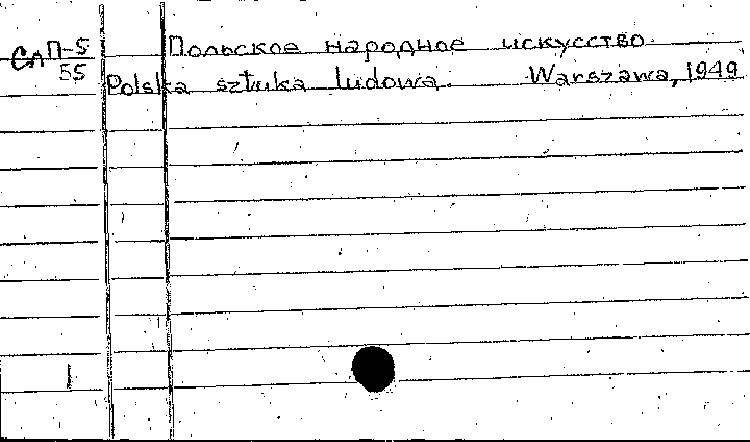 Сл П-5
55
Польское народное искусство.
Polska sztuka ludowa. Warszawa, 1949
1